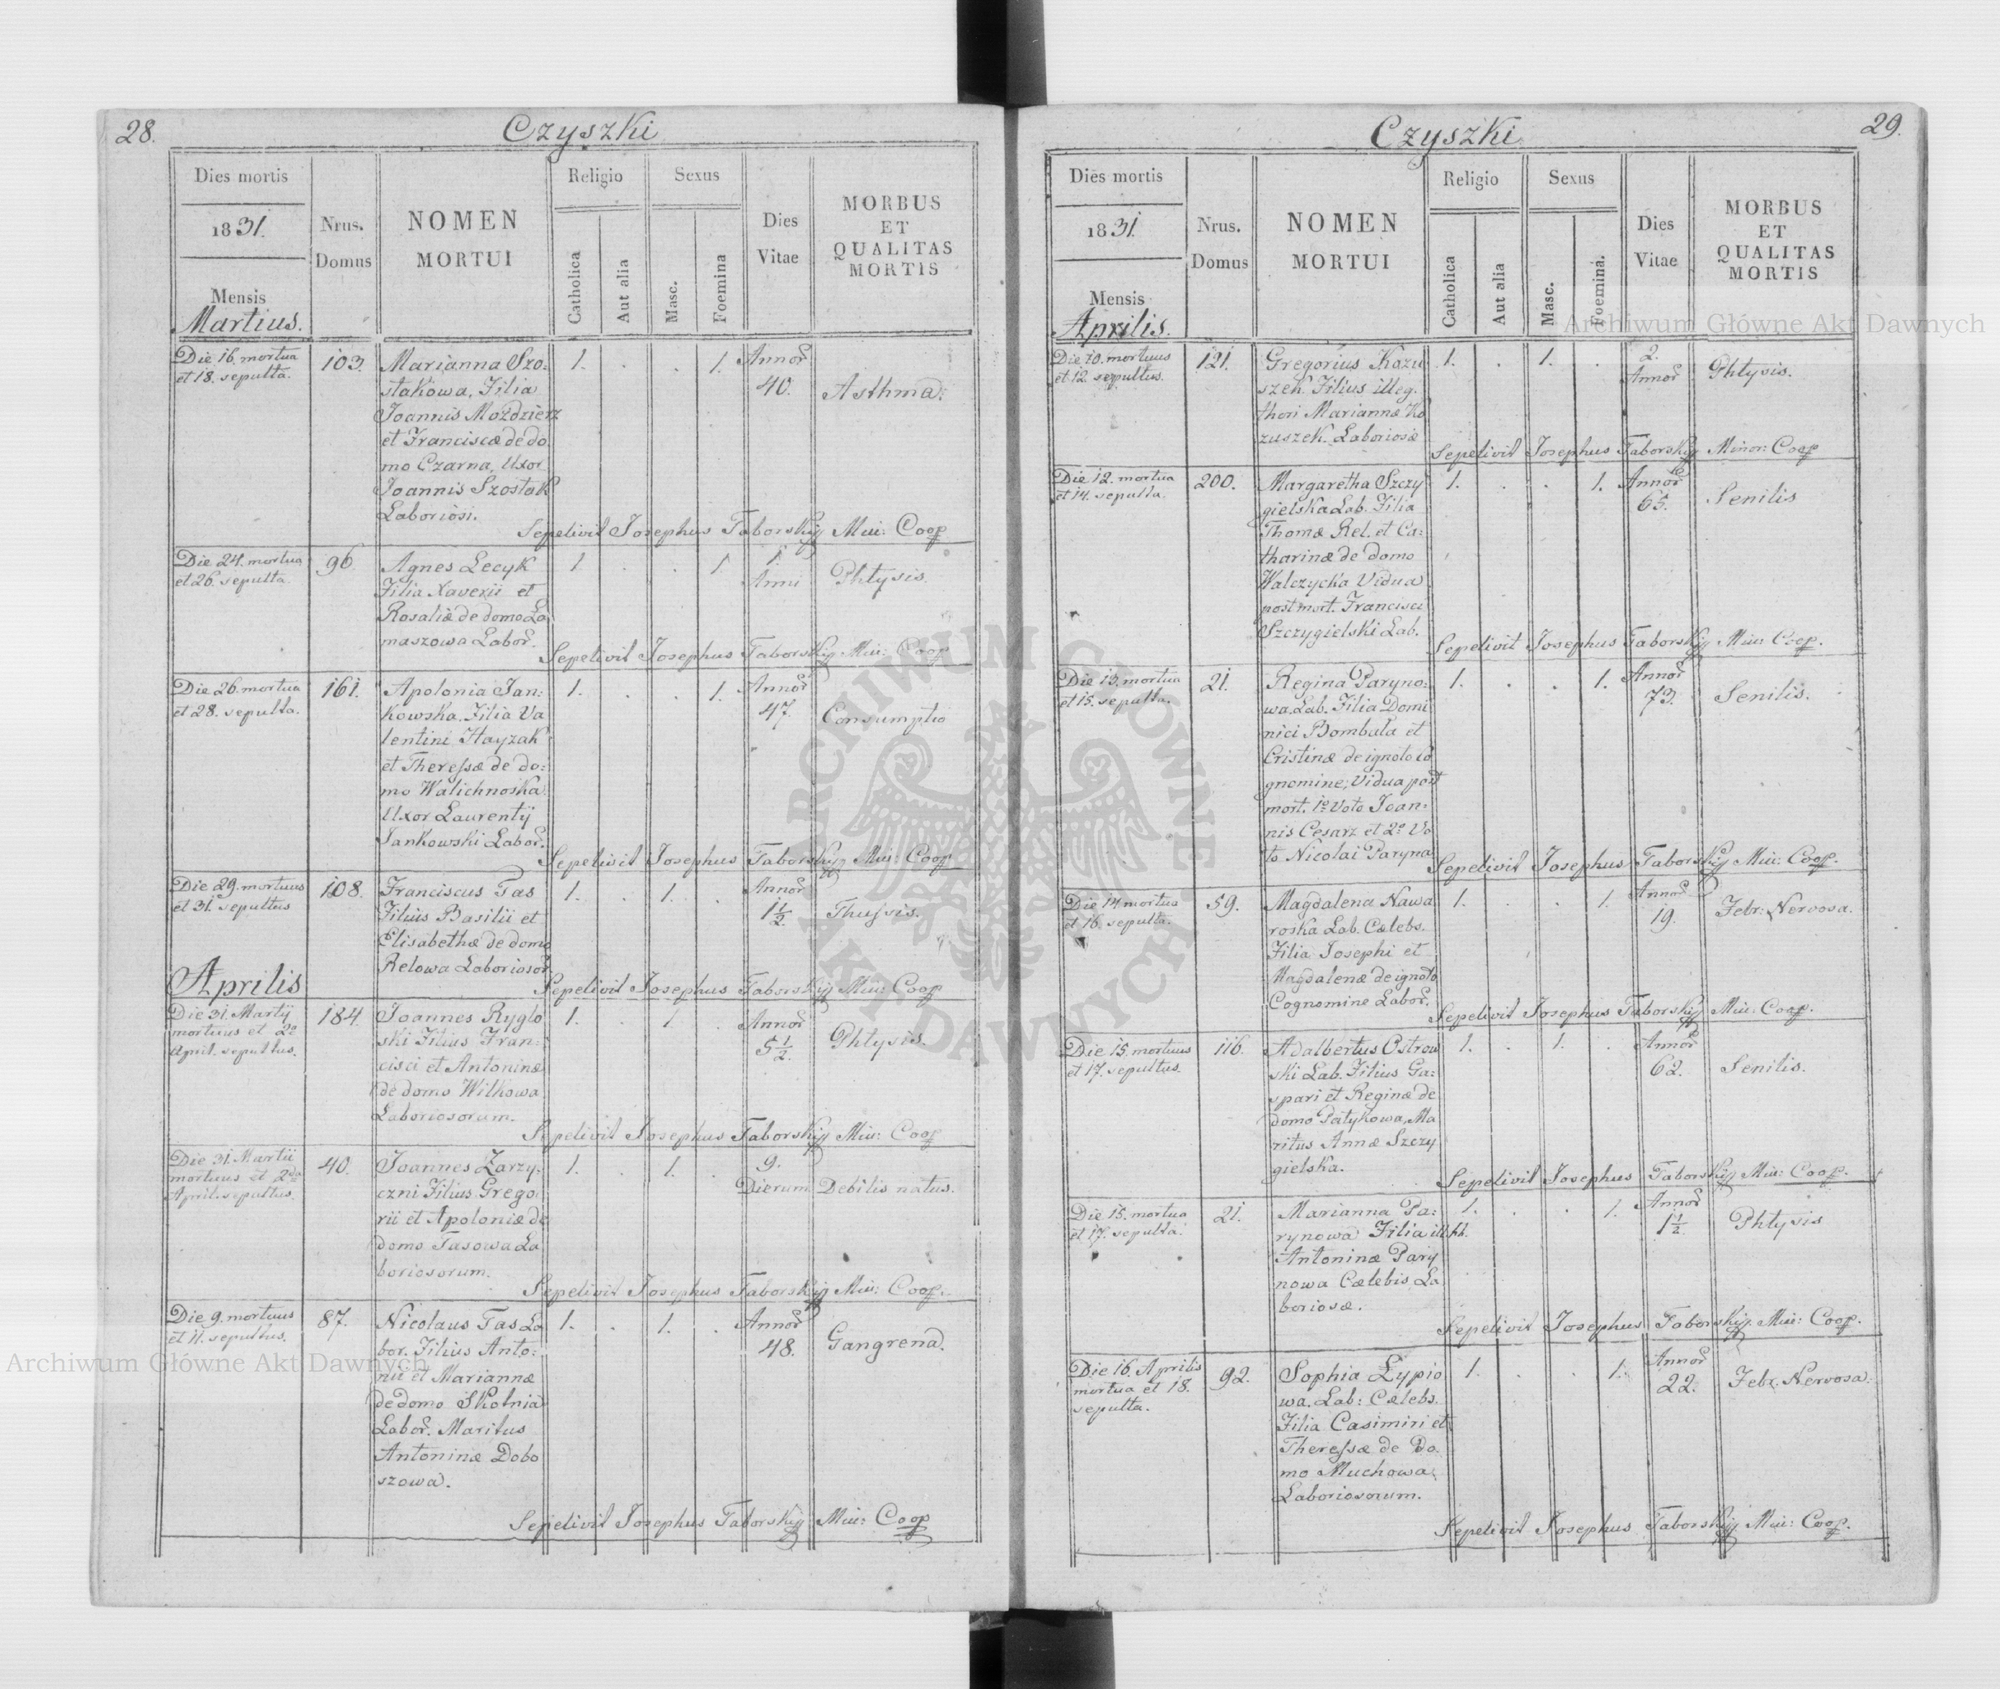 28.
Czyszki
Dies mortis
1831.
Mensis
Martius.
Nrus.
Domus
NOMEN
MORTUI
Religio
Catholica
Aut alia
Sexus
Masc.
Foemina
Dies
Vitae
MORBUS
ET
QUALITAS
MORTIS
Die 16. mortua
et 18. sepulta.
103.
Marianna Szo-
stakowa, Filia
Joannis Moździerz
et Franciscæ de do
mo Czarna, Uxor
Joannis Szostak
Laboriosi.
1. . . 1.
Annor
40.
Asthma.
Sepelivit Josephus Taborskij Min: Coop
Die 24. mortua
et 26. sepulta.
96
Agnes Lecyk
Filia Xaverii et
Rosaliæ de domo La
maszowa Labor.
1 . . 1
1.
Anni
Phtysis.
Sepelivit Josephus Taborskij Min: Coop
Die 26. mortua
et 28. sepulta.
161.
Apolonia Jan-
kowska. Filia Va
lentini Hayzak
et Theressæ de do-
mo Walichnoska
Uxor Laurentij
Jankowski Labor.
1. . . 1.
Annor
47.
Consumptio
Sepelivit Josephus Taborskij Min: Coop
Die 29. mortuus
et 31. sepultus
108.
Franciscus Tas
Filius Basilii et
Elisabethæ de domo
Relowa Laboriosor
1. . 1. .
Annor
1 1/2.
Thussis.
Sepelivit Josephus Taborskij Min: Coop
Aprilis
Die 31. Martij
mortuus et 2º
April. sepultus.
184.
Joannes Ryglo
ski Filius Fran-
cisci et Antoninæ
de domo Wilkowa
Laboriosorum.
1. . 1. .
Annor
5 1/2.
Phtysis.
Sepelivit Josephus Taborskij Min: Coop
Die 31. Martii
mortuus et 2da
April. sepultus.
40.
Joannes Zarzy-
czni Filius Grego
rii et Apoloniæ de
domo Tasowa La
boriosorum.
1. . 1. .
9.
Dierum
Debilis natus.
Sepelivit Josephus Taborskij Min: Coop.
Die 9. mortuus
et 11. sepultus.
87.
Nicolaus Tas La
bor. Filius Anto-
nii et Mariannæ
de domo Skolnia
Labor. Maritus
Antoninæ Dobo
szowa.
1. . 1. .
Annor
48.
Gangrena.
Sepelivit Josephus Taborskij Min: Coop
29.
Czyszki
Dies mortis
1831.
Mensis
Aprilis.
Nrus.
Domus
NOMEN
MORTUI
Religio
Catholica
Aut alia
Sexus
Masc.
Foemina.
Dies
Vitae
MORBUS
ET
QUALITAS
MORTIS
Die 10. mortuus
et 12. sepultus.
121.
Gregorius Kozu
szek. Filius illeg.
thori Mariannæ Ko
zuszek. Laboriosæ
1. . 1. .
2.
Annor
Phtysis.
Sepelivit Josephus Taborskij Minor: Coop
Die 12. mortua
et 14. sepulta.
200.
Margaretha Szczy
gielska Lab. Filia
Thomæ Rel. et Ca-
tharinæ de domo
Walczycka Vidua
post mort. Francisci
Szczygielski Lab.
1. . . 1.
Annor
65.
Senilis
Sepelivit Josephus Taborskij Min: Coop.
Die 13. mortua
et 15. sepulta.
21.
Regina Paryno-
wa. Lab. Filia Domi
nici Bombala et
Cristinæ de ignoto co
gnomine, Vidua post
mort. 1º Voto Joan-
nis Cesarz et 2º Vo
to Nicolai Paryna
1. . . 1.
Annor
73.
Senilis.
Sepelivit Josephus Taborskij Min: Coop.
Die 14 mortua
et 16. sepulta.
59.
Magdalena Nawa
roska Lab. Cælebs.
Filia Josephi et
Magdalenæ de ignoto
Cognomine Labor.
1. . . 1.
Annor
19.
Febr: Nervosa.
Sepelivit Josephus Taborskij Min: Coop.
Die 15. mortuus
et 17. sepultus.
116.
Adalbertus Ostrow
ski Lab. Filius Ga-
spari et Reginæ de
domo Patykowa, Ma
ritus Annæ Szczy
gielska.
1. . 1. .
Annor
62.
Senilis.
Sepelivit Josephus Taborskij Min: Coop.
Die 15. mortua
et 17. sepulta.
21.
Marianna Pa-
rynowa Filia ill. th.
Antoninæ Pary
nowa Cælebis La
boriosæ.
1. . . 1.
Annor
1 1/2.
Phtysis
Sepelivit Josephus Taborskij Min: Coop.
Die 16. Aprilis
mortua et 18.
sepulta.
92.
Sophia Lypio
wa. Lab: Cælebs.
Filia Casimiri et
Theressæ de Do
mo Muchowa.
Laboriosorum.
1. . . 1.
Annor
22.
Febr. Nervosa.
Sepelivit Josephus Taborskij Min: Coop.
Archiwum Główne Akt Dawnych
Archiwum Główne Akt Dawnych
ARCHIWUM GŁÓWNE AKT DAWNYCH